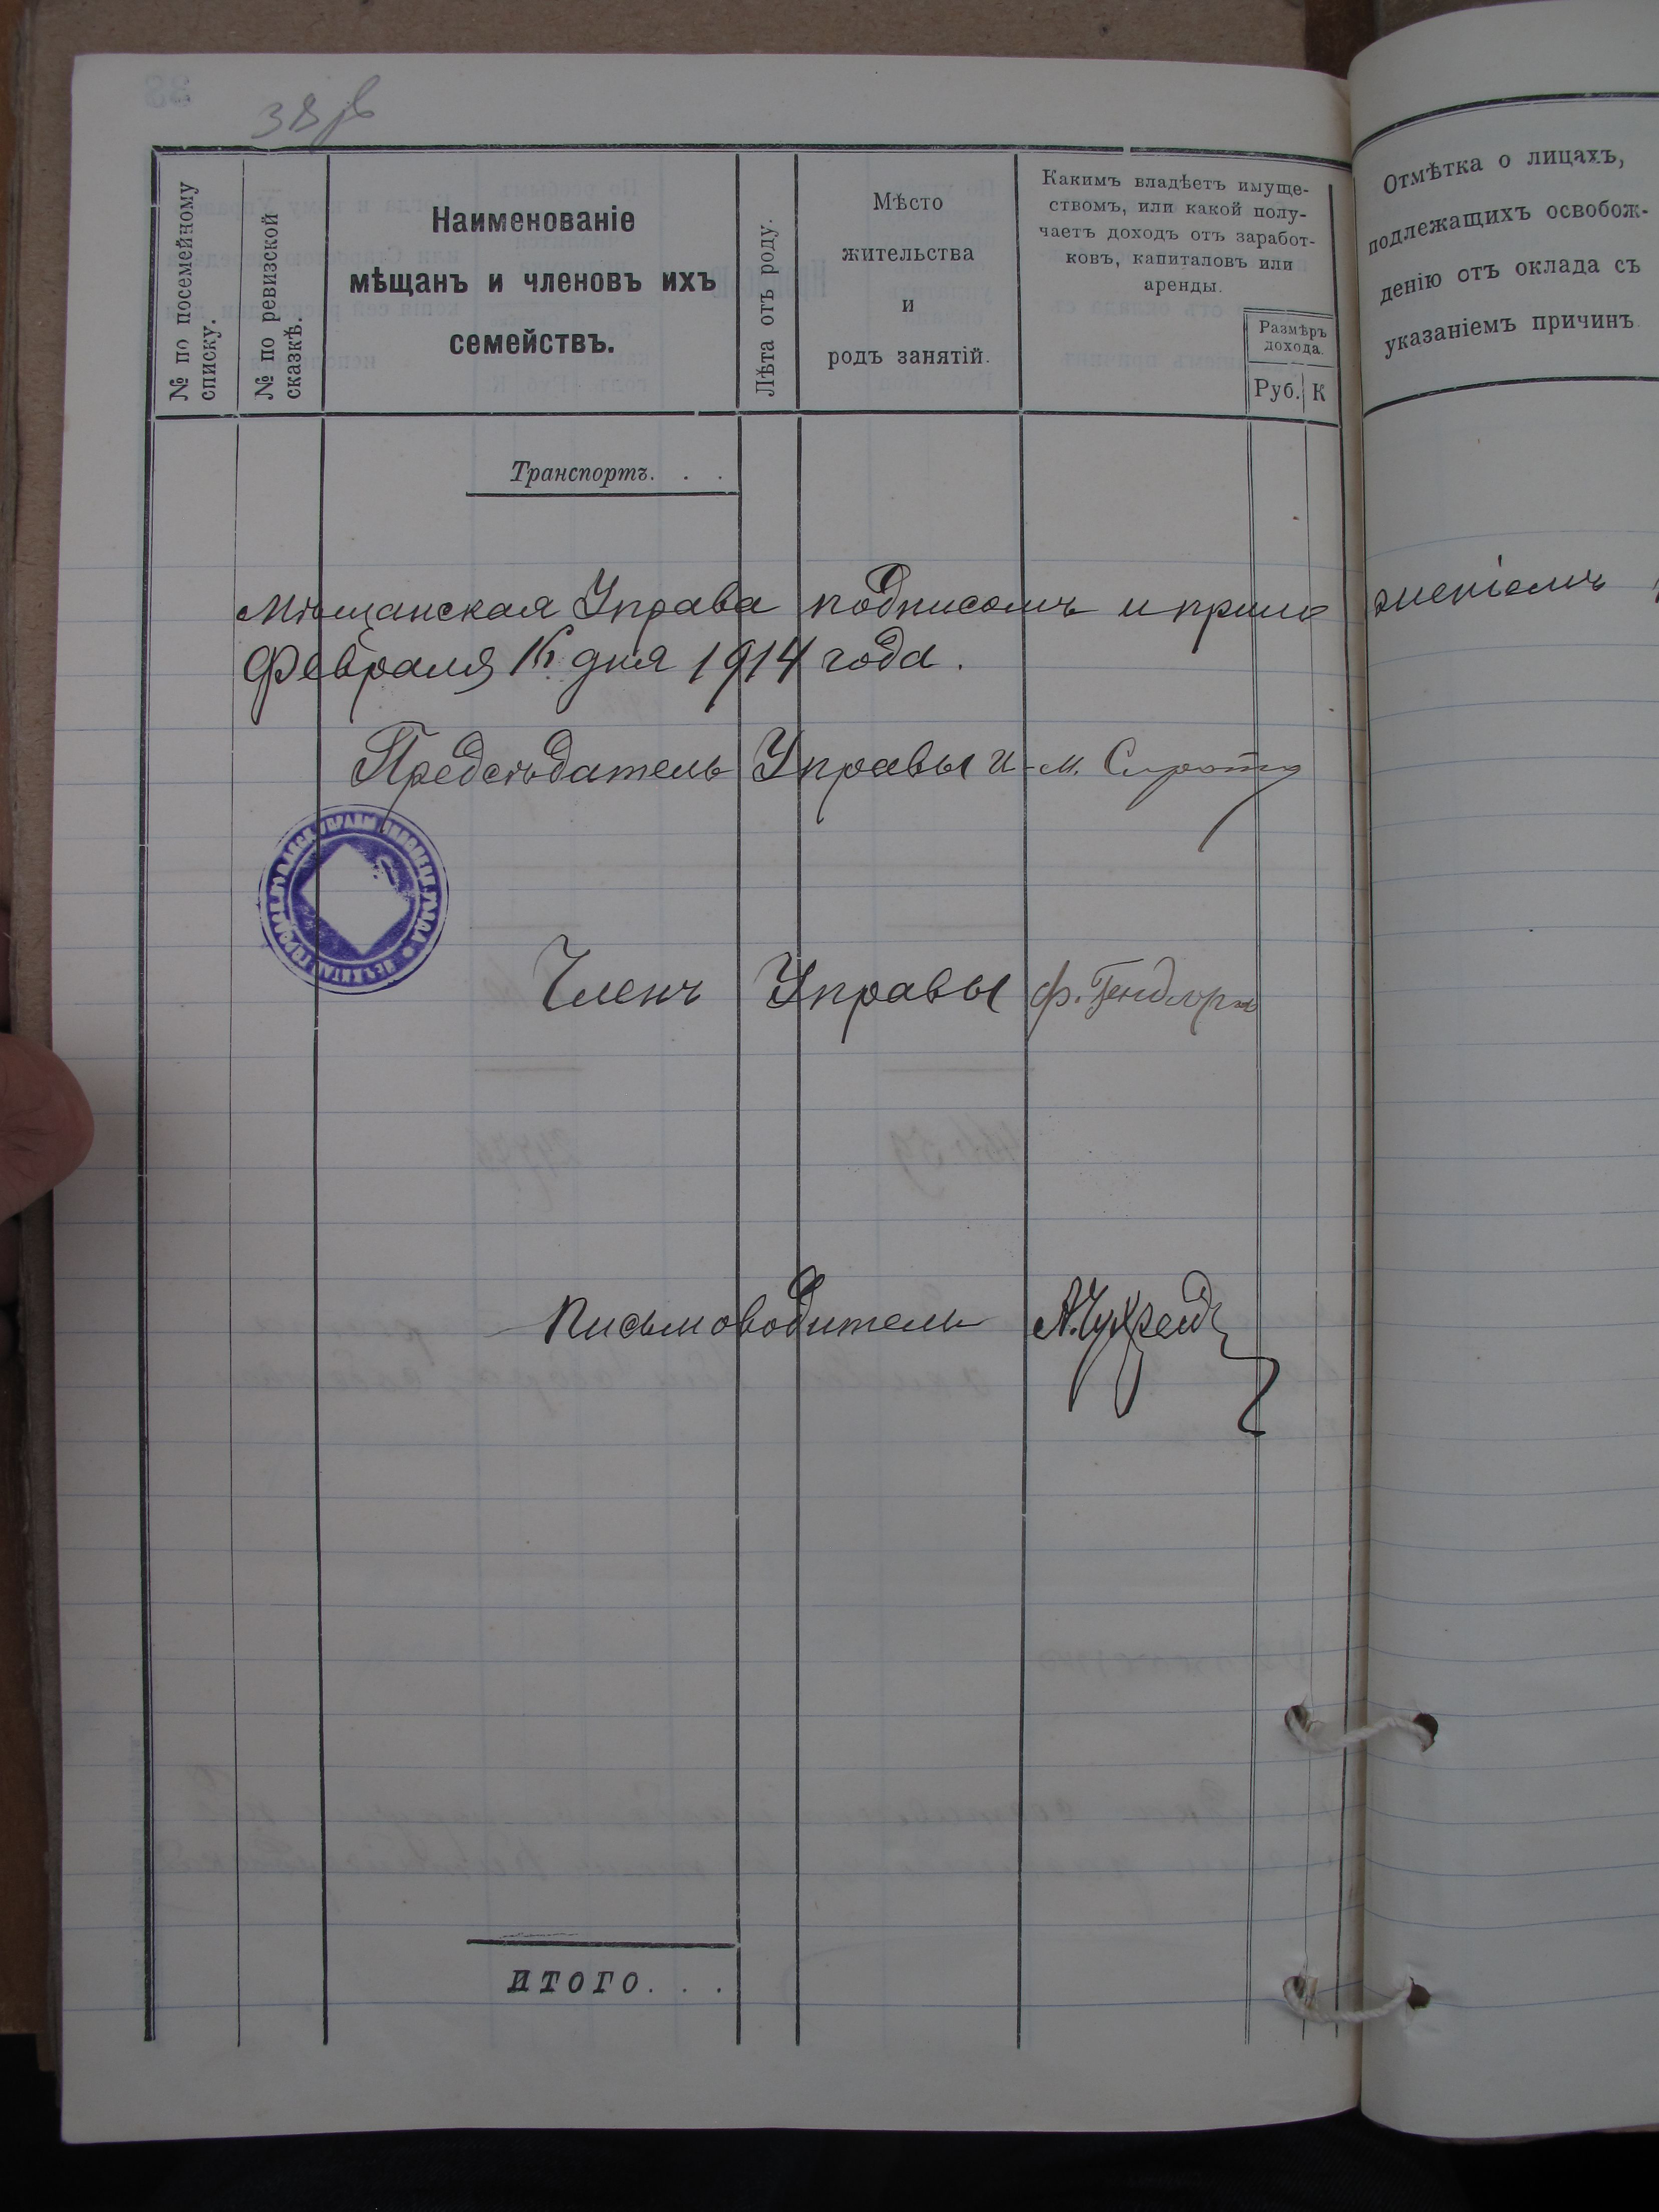 38 об
№ по посемейному
списку.
№ по ревизской
сказкѣ.
Наименованіе
мѣщанъ и членовъ ихъ
семействъ.
Лѣта отъ роду.
Мѣсто
жительства
и
родъ занятій.
Какимъ владѣетъ имуще-
ствомъ, или какой полу-
чаетъ доходъ отъ заработ-
ковъ, капиталовъ или
аренды.
Размѣръ
дохода.
Руб. К
Отмѣтка о лицахъ,
подлежащихъ освобож-
денію отъ оклада съ
указаніемъ причинъ
Транспортъ. . .
Мѣщанская Управа подписомъ и прило женіемъ
Февраля дня 1914 года.
Предсѣдатель Управы И. М. Сирота
Членъ Управы Ф.
Письмоводитель А.
ИТОГО. . .